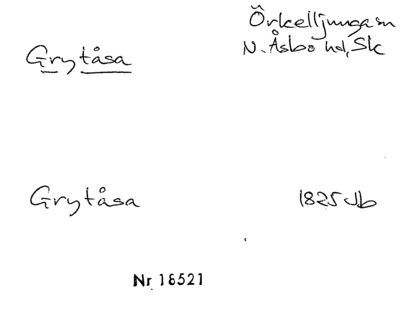 Örkelljunga sn
Grytåsa
N. Åsbo hd, Sk
Grytåsa
1825 Jb
Nr 18521